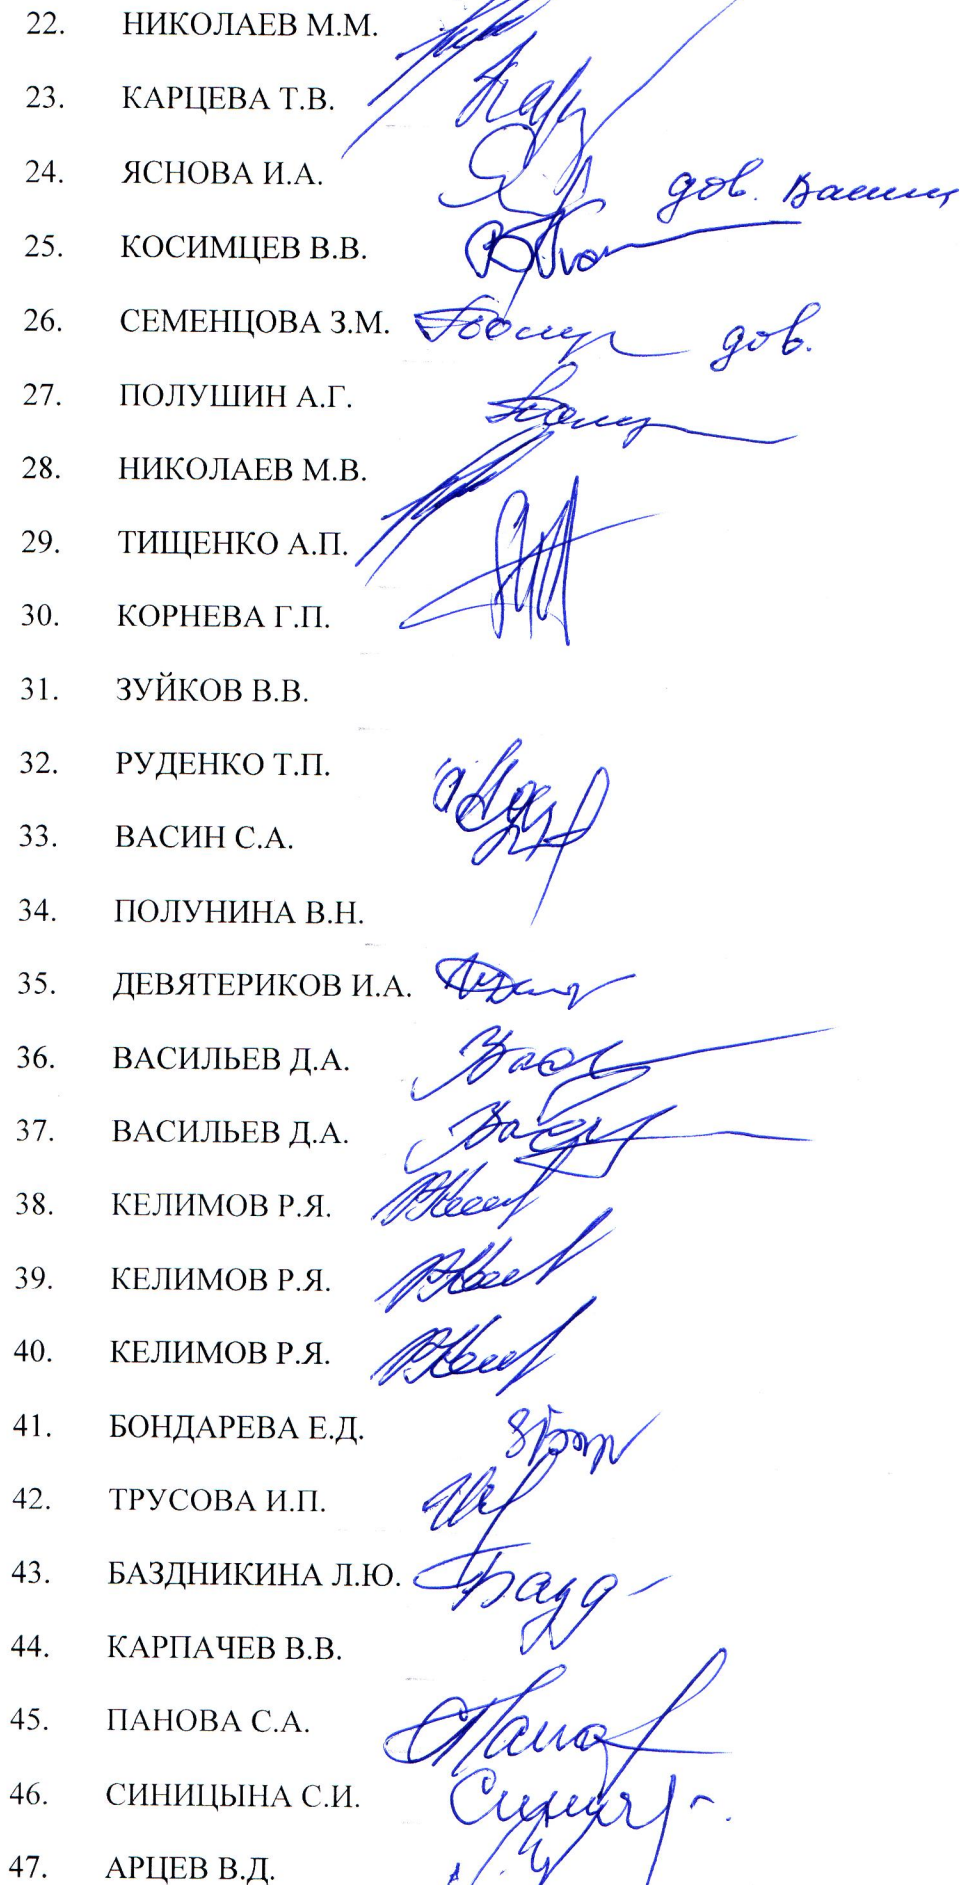 22. НИКОЛАЕВ М.М.
23. КАРЦЕВА Т.В.
24. ЯСНОВА И.А. дов.
25. КОСИМЦЕВ В.В.
26. СЕМЕНЦОВА З.М. дов.
27. ПОЛУШИН А.Г.
28. НИКОЛАЕВ М.В.
29. ТИЩЕНКО А.П.
30. КОРНЕВА Г.П.
31. ЗУЙКОВ В.В.
32. РУДЕНКО Т.П.
33. ВАСИН С.А.
34. ПОЛУНИНА В.Н.
35. ДЕВЯТЕРИКОВ И.А.
36. ВАСИЛЬЕВ Д.А.
37. ВАСИЛЬЕВ Д.А.
38. КЕЛИМОВ Р.Я.
39. КЕЛИМОВ Р.Я.
40. КЕЛИМОВ Р.Я.
41. БОНДАРЕВА Е.Д.
42. ТРУСОВА И.П.
43. БАЗДНИКИНА Л.Ю.
44. КАРПАЧЕВ В.В.
45. ПАНОВА С.А.
46. СИНИЦЫНА С.И.
47. АРЦЕВ В.Д.